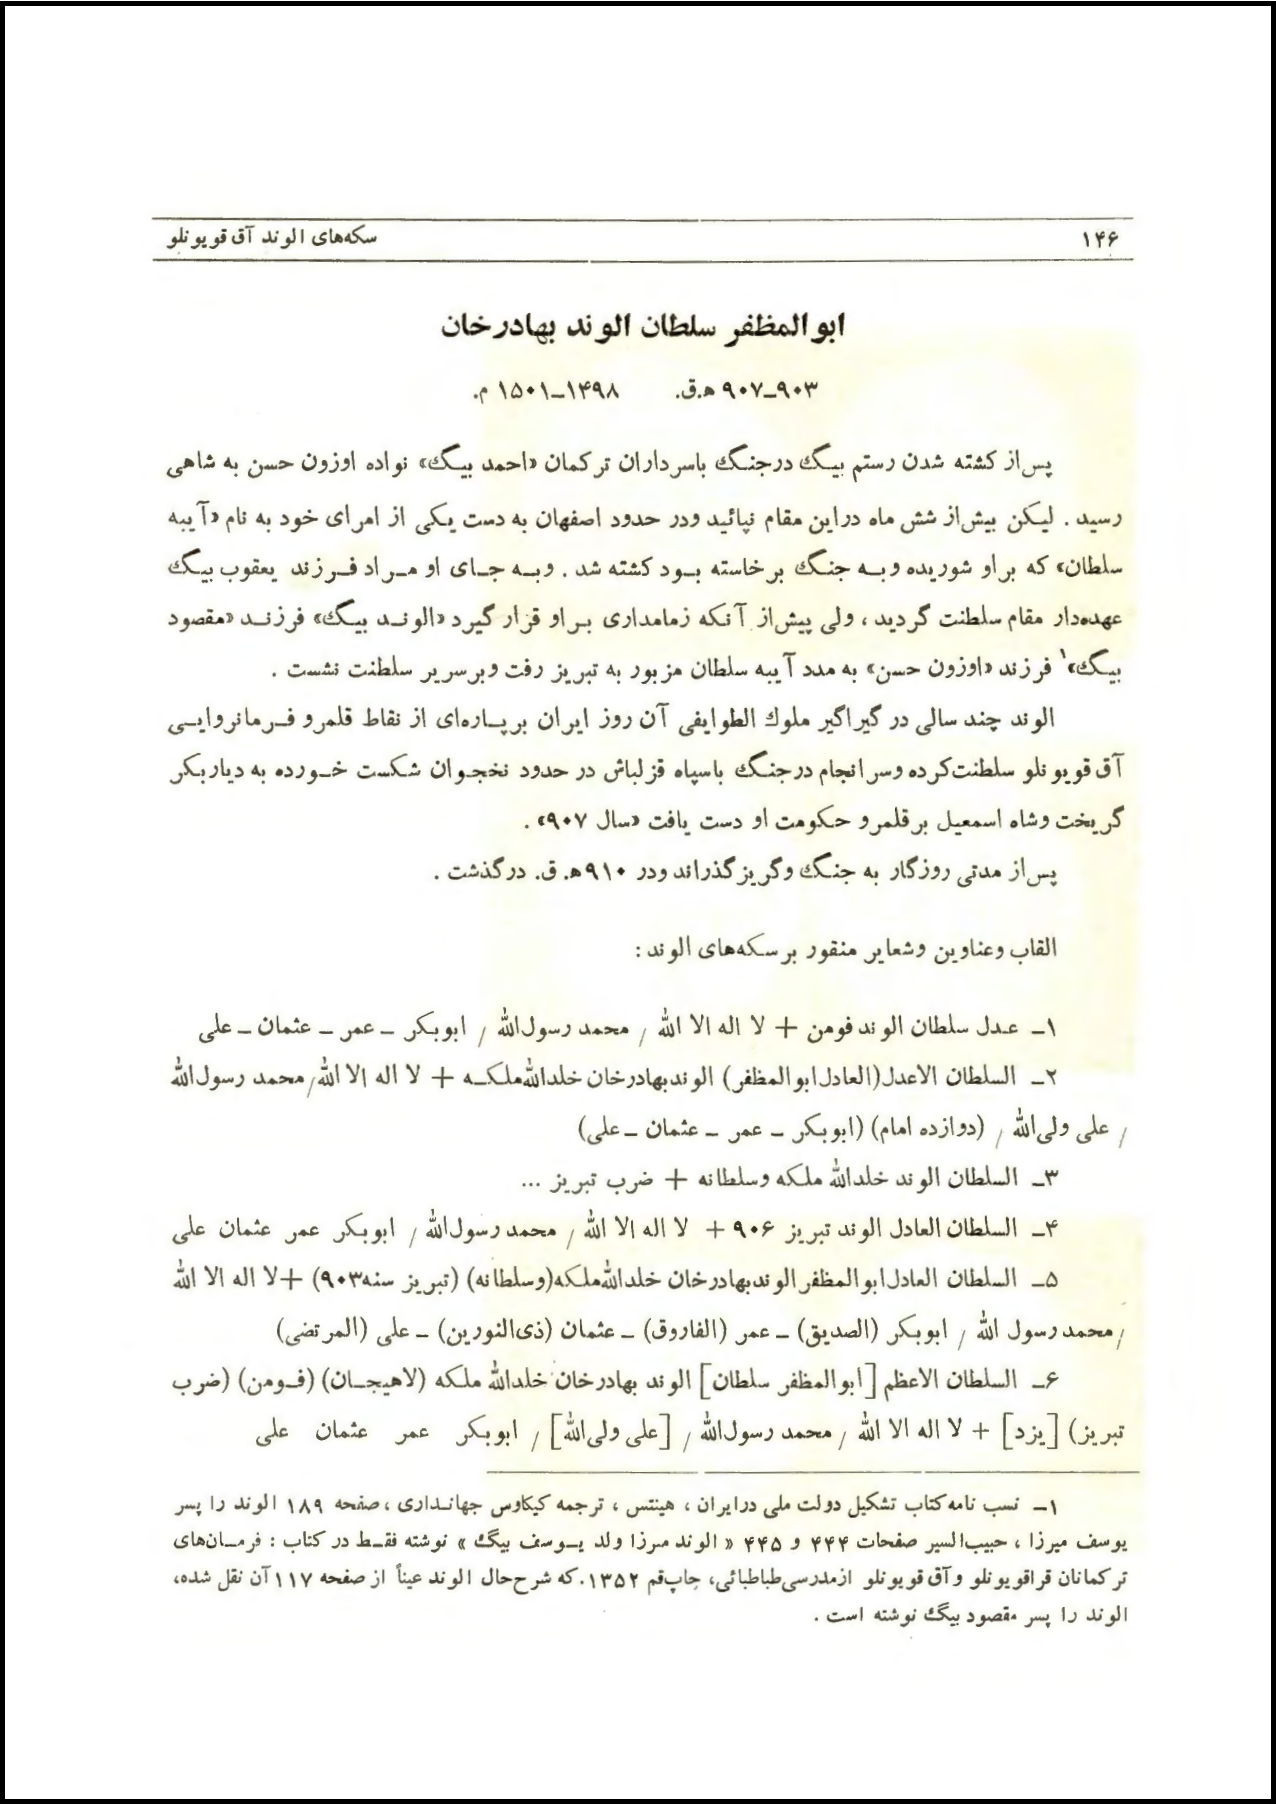 ۱۴۶
سکه‌های الوند آق قویونلو
ابوالمظفر سلطان الوند بهادرخان
۹۰۳ــ۹۰۷ ه‍.ق. ۱۴۹۸ــ۱۵۰۱ م.
پس‌از کشته شدن رستم بیگ درجنگ باسرداران ترکمان «احمد بیگ» نواده اوزون حسن به شاهی
رسید . لیکن بیش‌از شش ماه دراین مقام نپائید ودر حدود اصفهان به دست یکی از امرای خود به نام «آیبه
سلطان» که براو شوریده وبه جنگ برخاسته بود کشته شد . وبه جای او مراد فرزند یعقوب بیگ
عهده‌دار مقام سلطنت گردید ، ولی پیش‌از آنکه زمامداری براو قرار گیرد «الوند بیگ» فرزند «مقصود
بیگ»۱ فرزند «اوزون حسن» به مدد آیبه سلطان مزبور به تبریز رفت وبرسریر سلطنت نشست .
الوند چند سالی در گیراگیر ملوك الطوایفی آن روز ایران برپاره‌ای از نقاط قلمرو فرمانروایی
آق قویونلو سلطنت‌کرده وسرانجام درجنگ باسپاه قزلباش در حدود نخجوان شکست خورده به دیاربکر
گریخت وشاه اسمعیل برقلمرو حکومت او دست یافت «سال ۹۰۷» .
پس‌از مدتی روزگار به جنگ وگریزگذراند ودر ۹۱۰ه‍. ق. درگذشت .
القاب وعناوین وشعایر منقور برسکه‌های الوند :
۱ــ عدل سلطان الوند فومن + لا اله الا الله / محمد رسول‌الله / ابوبکر ــ عمر ــ عثمان ــ علی
۲ــ السلطان الاعدل(العادل‌ابوالمظفر) الوندبهادرخان خلدالله‌ملکه + لا اله الا الله/ محمد رسول‌الله
/ علی ولی‌الله / (دوازده امام) (ابوبکر ــ عمر ــ عثمان ــ علی)
۳ــ السلطان الوند خلدالله ملکه وسلطانه + ضرب تبریز ...
۴ــ السلطان العادل الوند تبریز ۹۰۶ + لا اله الا الله / محمد رسول‌الله / ابوبکر عمر عثمان علی
۵ــ السلطان العادل‌ابوالمظفر الوندبهادرخان خلدالله‌ملکه(وسلطانه) (تبریز سنه۹۰۳) +لا اله الا الله
/ محمد رسول الله / ابوبکر (الصدیق) ــ عمر (الفاروق) ــ عثمان (ذی‌النورین) ــ علی (المرتضی)
۶ــ السلطان الاعظم [ابوالمظفر سلطان] الوند بهادرخان خلدالله ملکه (لاهیجان) (فومن) (ضرب
تبریز) [یزد] + لا اله الا الله / محمد رسول‌الله / [علی ولی‌الله] / ابوبکر عمر عثمان علی
۱ــ نسب نامه‌کتاب تشکیل دولت ملی درایران ، هینتس ، ترجمه کیکاوس جهانداری ، صفحه ۱۸۹ الوند را پسر
یوسف میرزا ، حبیب‌السیر صفحات ۴۴۴ و ۴۴۵ « الوند میرزا ولد یوسف بیگ » نوشته فقط در کتاب : فرمان‌های
ترکمانان قراقویونلو وآق قویونلو ازمدرسی‌طباطبائی، چاپ‌قم ۱۳۵۲.که شرح‌حال الوند عیناً از صفحه ۱۱۷آن نقل شده،
الوند را پسر مقصود بیگ نوشته است .